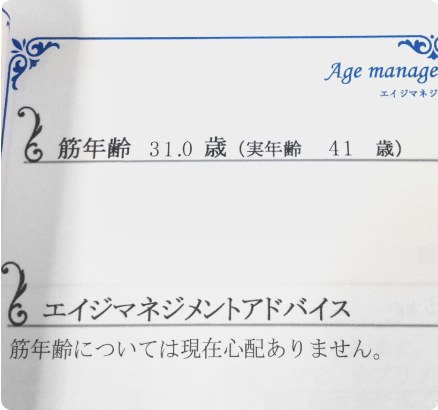 Age manage
エイジマネジ
筋年齢 31.0 歳（実年齢 41 歳）
エイジマネジメントアドバイス
筋年齢については現在心配ありません。